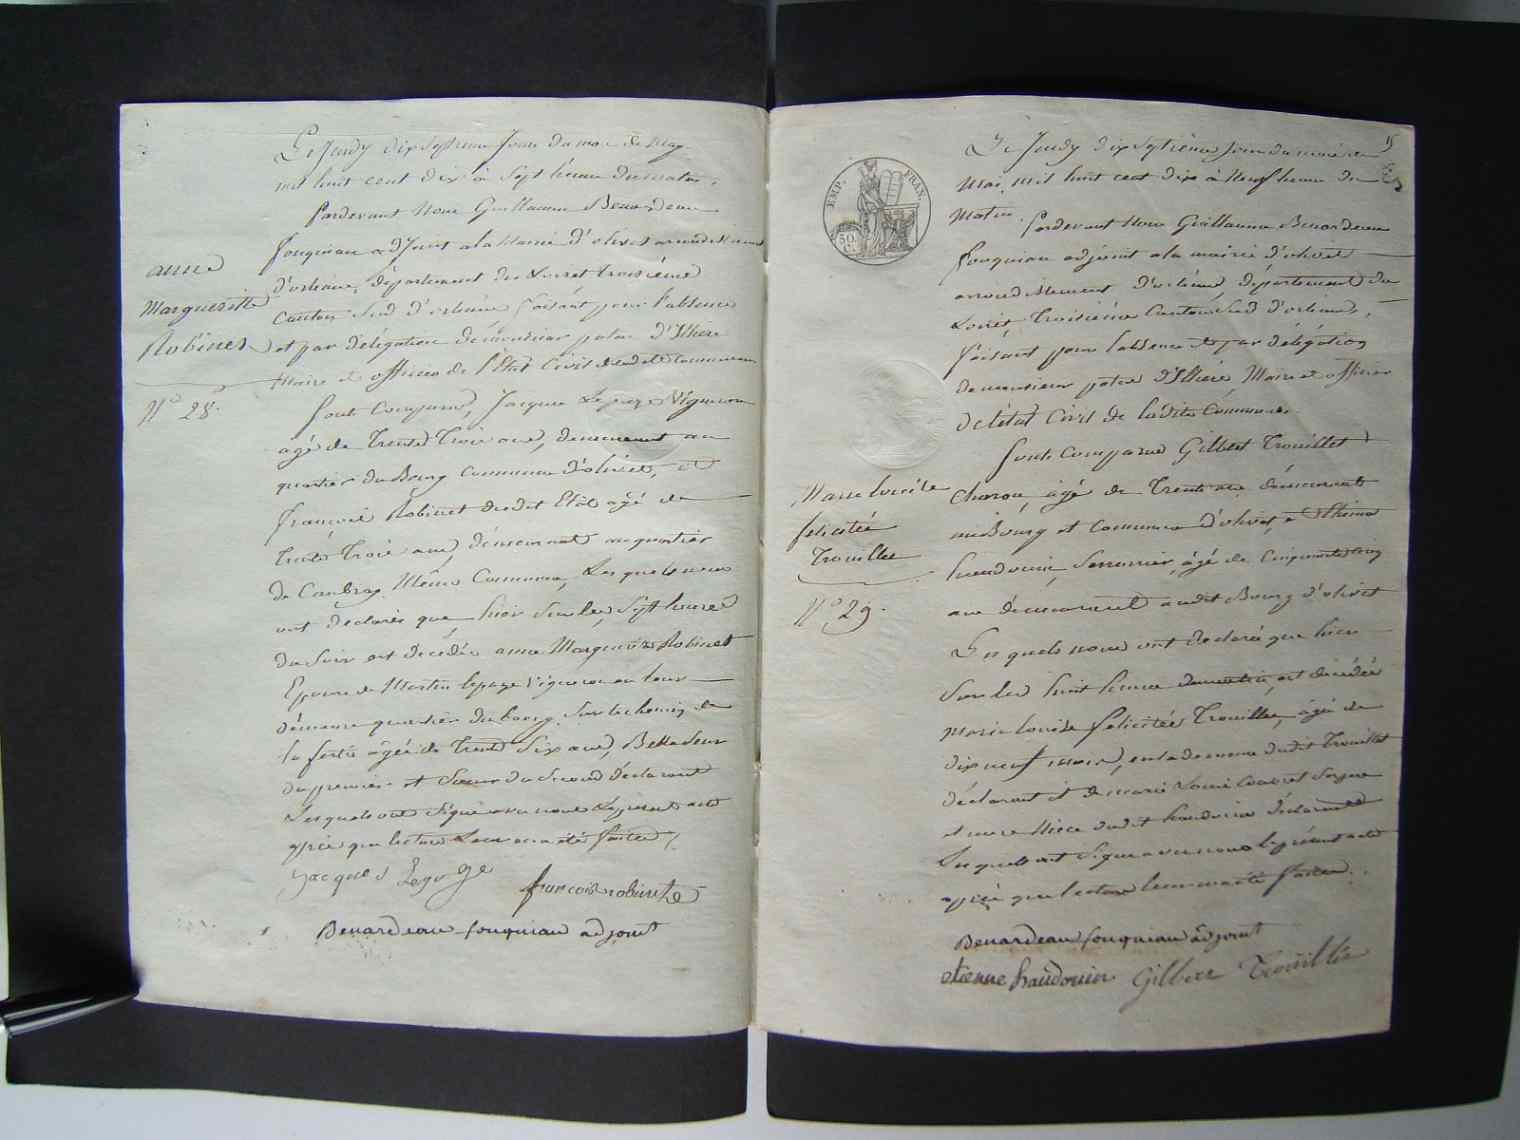 Le Jeudy dix Septieme Jour du mois de may
mil huit cent dix à Sept heures du matin,
Pardevant Nous Guillaume Benardeau
fouquiau adjoint a la Mairie d'olivet arrondissement
d'orléans, département du Loiret troisiéme
Canton Sud d'orléans faisant pour l'absence
et par délégation de monsieur patas d'Illiers
Maire et officier de l'état Civil de ladite Commune
Sont Comparus, Jacques Lepage Vigneron
agé de Trente Trois ans, demeurant au
quartier du Bourg Commune d'olivet, et
françois Robinet dudit Etat agé de
Trente Trois ans, demeurant au quartier
de Couasnon Même Commune, Lesquels nous
ont declarés que hier Sur les Sept heures
du Soir est decédée anne Marguerite Robinet
Epouse de Martin lepage Vigneron en leur
démeure quartier du bourg Sur le chemin de
la ferté agée de Trente Six ans, Belle Soeur
du premier et Soeur du Second déclarant
Lesquels ont Signé avec nous Le present acte
après que lecture Leur en a été faitte /.
jacques Lepage
francois robinet
Benardeau fouquiau adjoint
anne
Marguerite
Robinet
N° 28.
EMP. FRAN.
50 C.
Le Jeudy dix Septieme Jour du mois de
Mai mil huit cent dix à Neuf heures du
Matin. Pardevant Nous Guillaume Benardeau
fouquiau adjoint a la mairie d'olivet
arrondissement d'orléans, département du
Loiret, Troisiéme Canton Sud d'orléans,
faisant pour l'absence et par délégation
de monsieur patas d'Illiers Maire et officier
de l'état Civil de ladite Commune
Sont Comparus Gilbert Trouillet
Charon, agé de Trente ans demeurant
au Bourg et Commune d'olivet, et Etienne
haudouin, Serrurier, agé de Cinquante Cinq
ans demeurant audit Bourg d'olivet
Lesquels nous ont declaré que hier
Sur les huit heures du matin, est décédée
Marie Louise felicitée Trouillet, agée de
dix neuf mois, en la demeure dudit Trouillet
déclarant et de marie Louise
et niece dudit haudouin déclarant
Lesquels ont Signé avec nous le présent acte
après que lecture leur en a été faitte.
Benardeau fouquiau adjoint
etienne haudouin Gilbert Trouillet
Marie Louise
felicitée
Trouillet
N° 29.